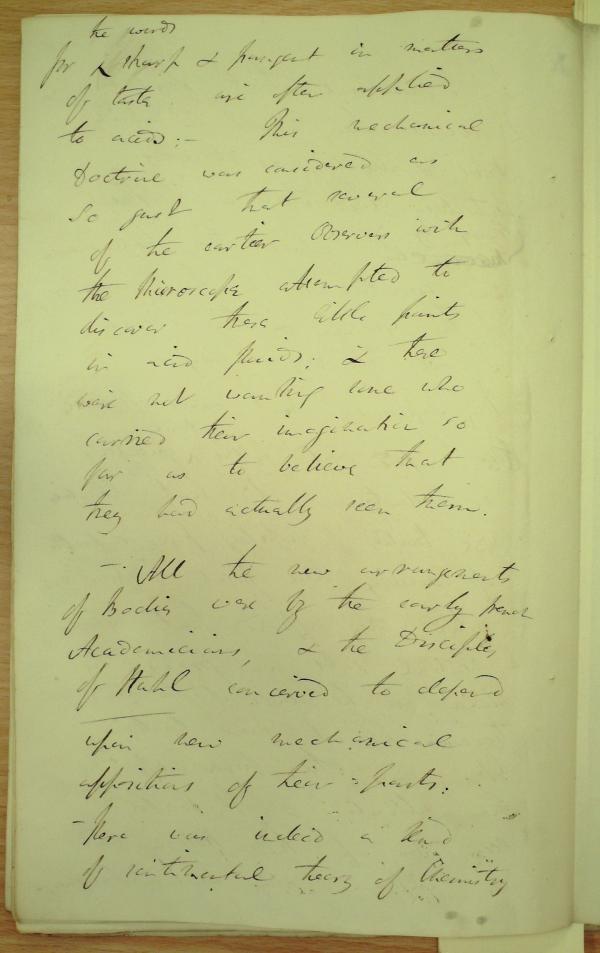 the words
for sharp & pungent in matters
of taste are often applied
to acids:— This mechanical
Doctrine was considered as
so just that several
of the earlier Observers with
the Microscope attempted to
discover these little points
in acid fluids; & there
were not wanting some who
carried their imagination so
far as to believe that
they had actually seen them.
— All the new arrangements
of Bodies were by the early french
Academicians, & the Disciples,
of Stahl conceived to depend
upon new mechanical
appositions of their parts:
— There was indeed a kind
of sentimental theory of Chemistry